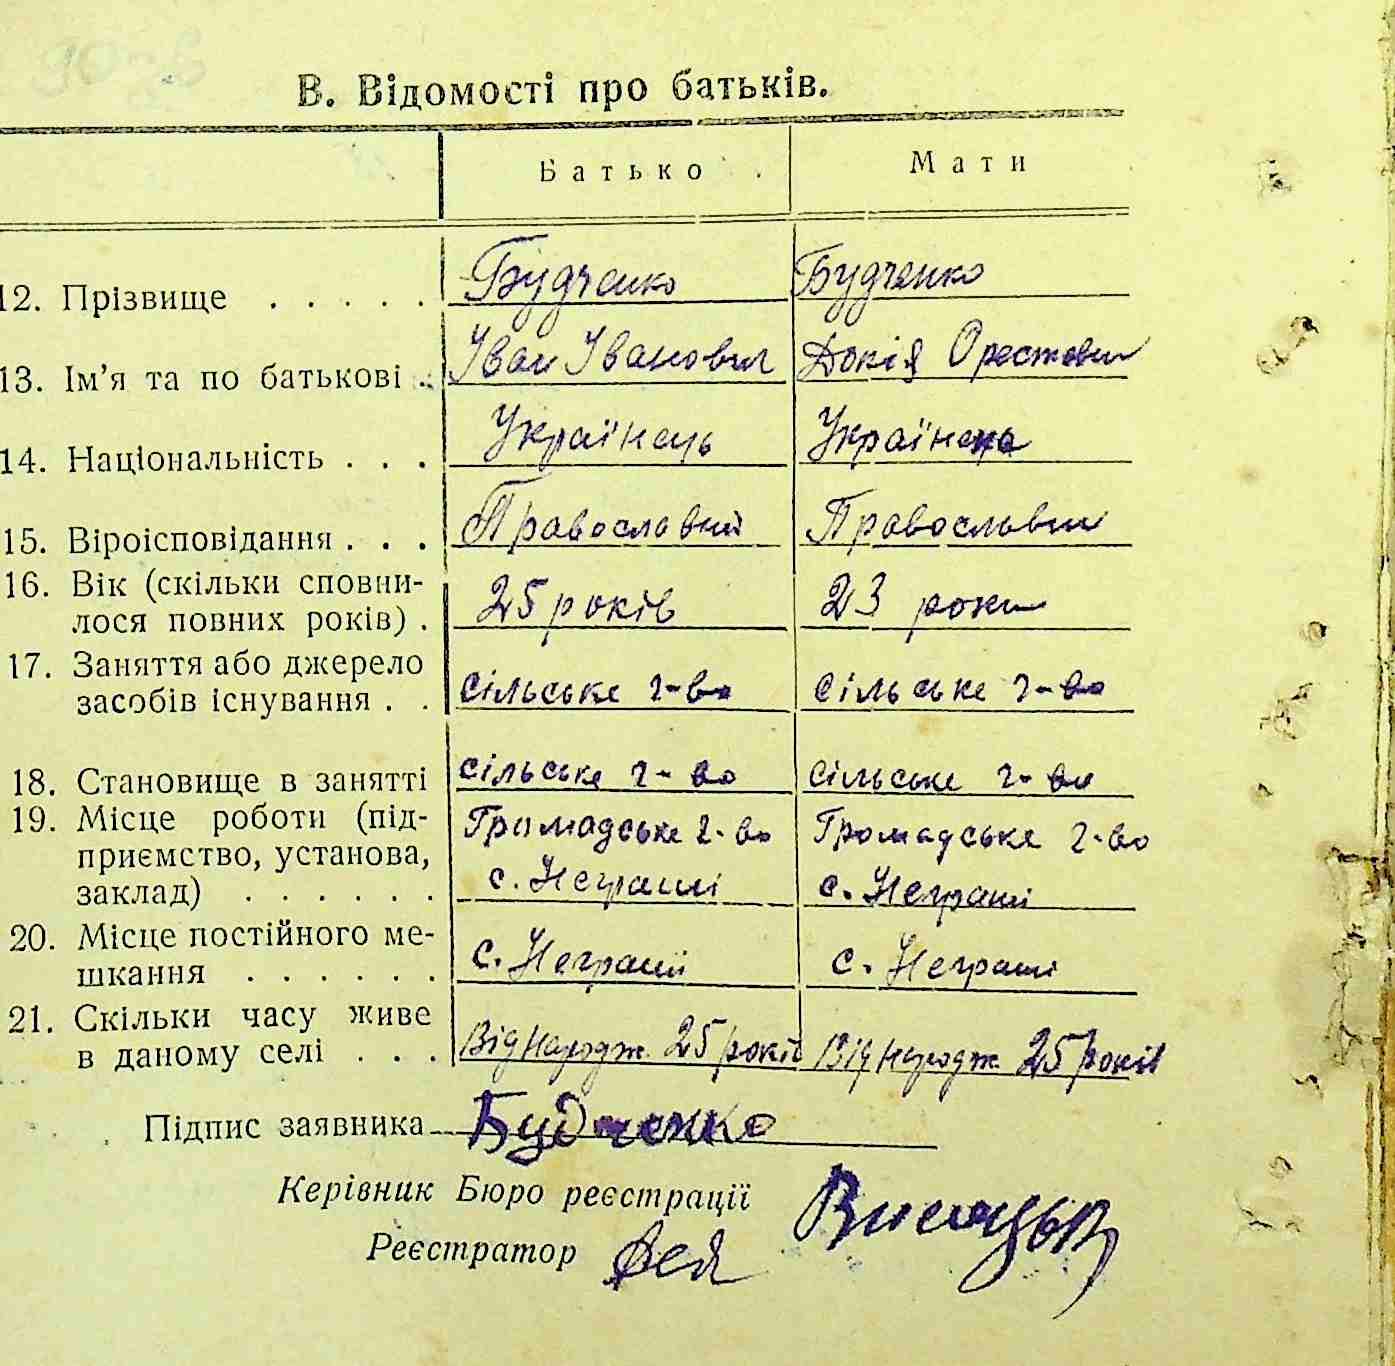 В. Відомості про батьків.
Батько Мати
12. Прізвище . . . . . Будченко Будченко
13. Ім'я та по батькові . Іван Іванович Докія Орестовн
14. Національність . . . Українець Українка
15. Віроісповідання . . . Православний Православни
16. Вік (скільки сповни-
лося повних років) . 25 років 23 роки
17. Заняття або джерело
засобів існування . . сільське г-во сільське г-во
18. Становище в занятті сільське г-во сільське г-во
19. Місце роботи (під- Громадське г-во Громадське г-во
приємство, установа,
заклад) . . . . . . с. Неграші с. Неграші
20. Місце постійного ме-
шкання . . . . . . с. Неграші с. Неграші
21. Скільки часу живе
в даному селі . . . Від народж. 25 років Від народж. 25 років
Підпис заявника Будченко
Керівник Бюро реєстрації
Реєстратор